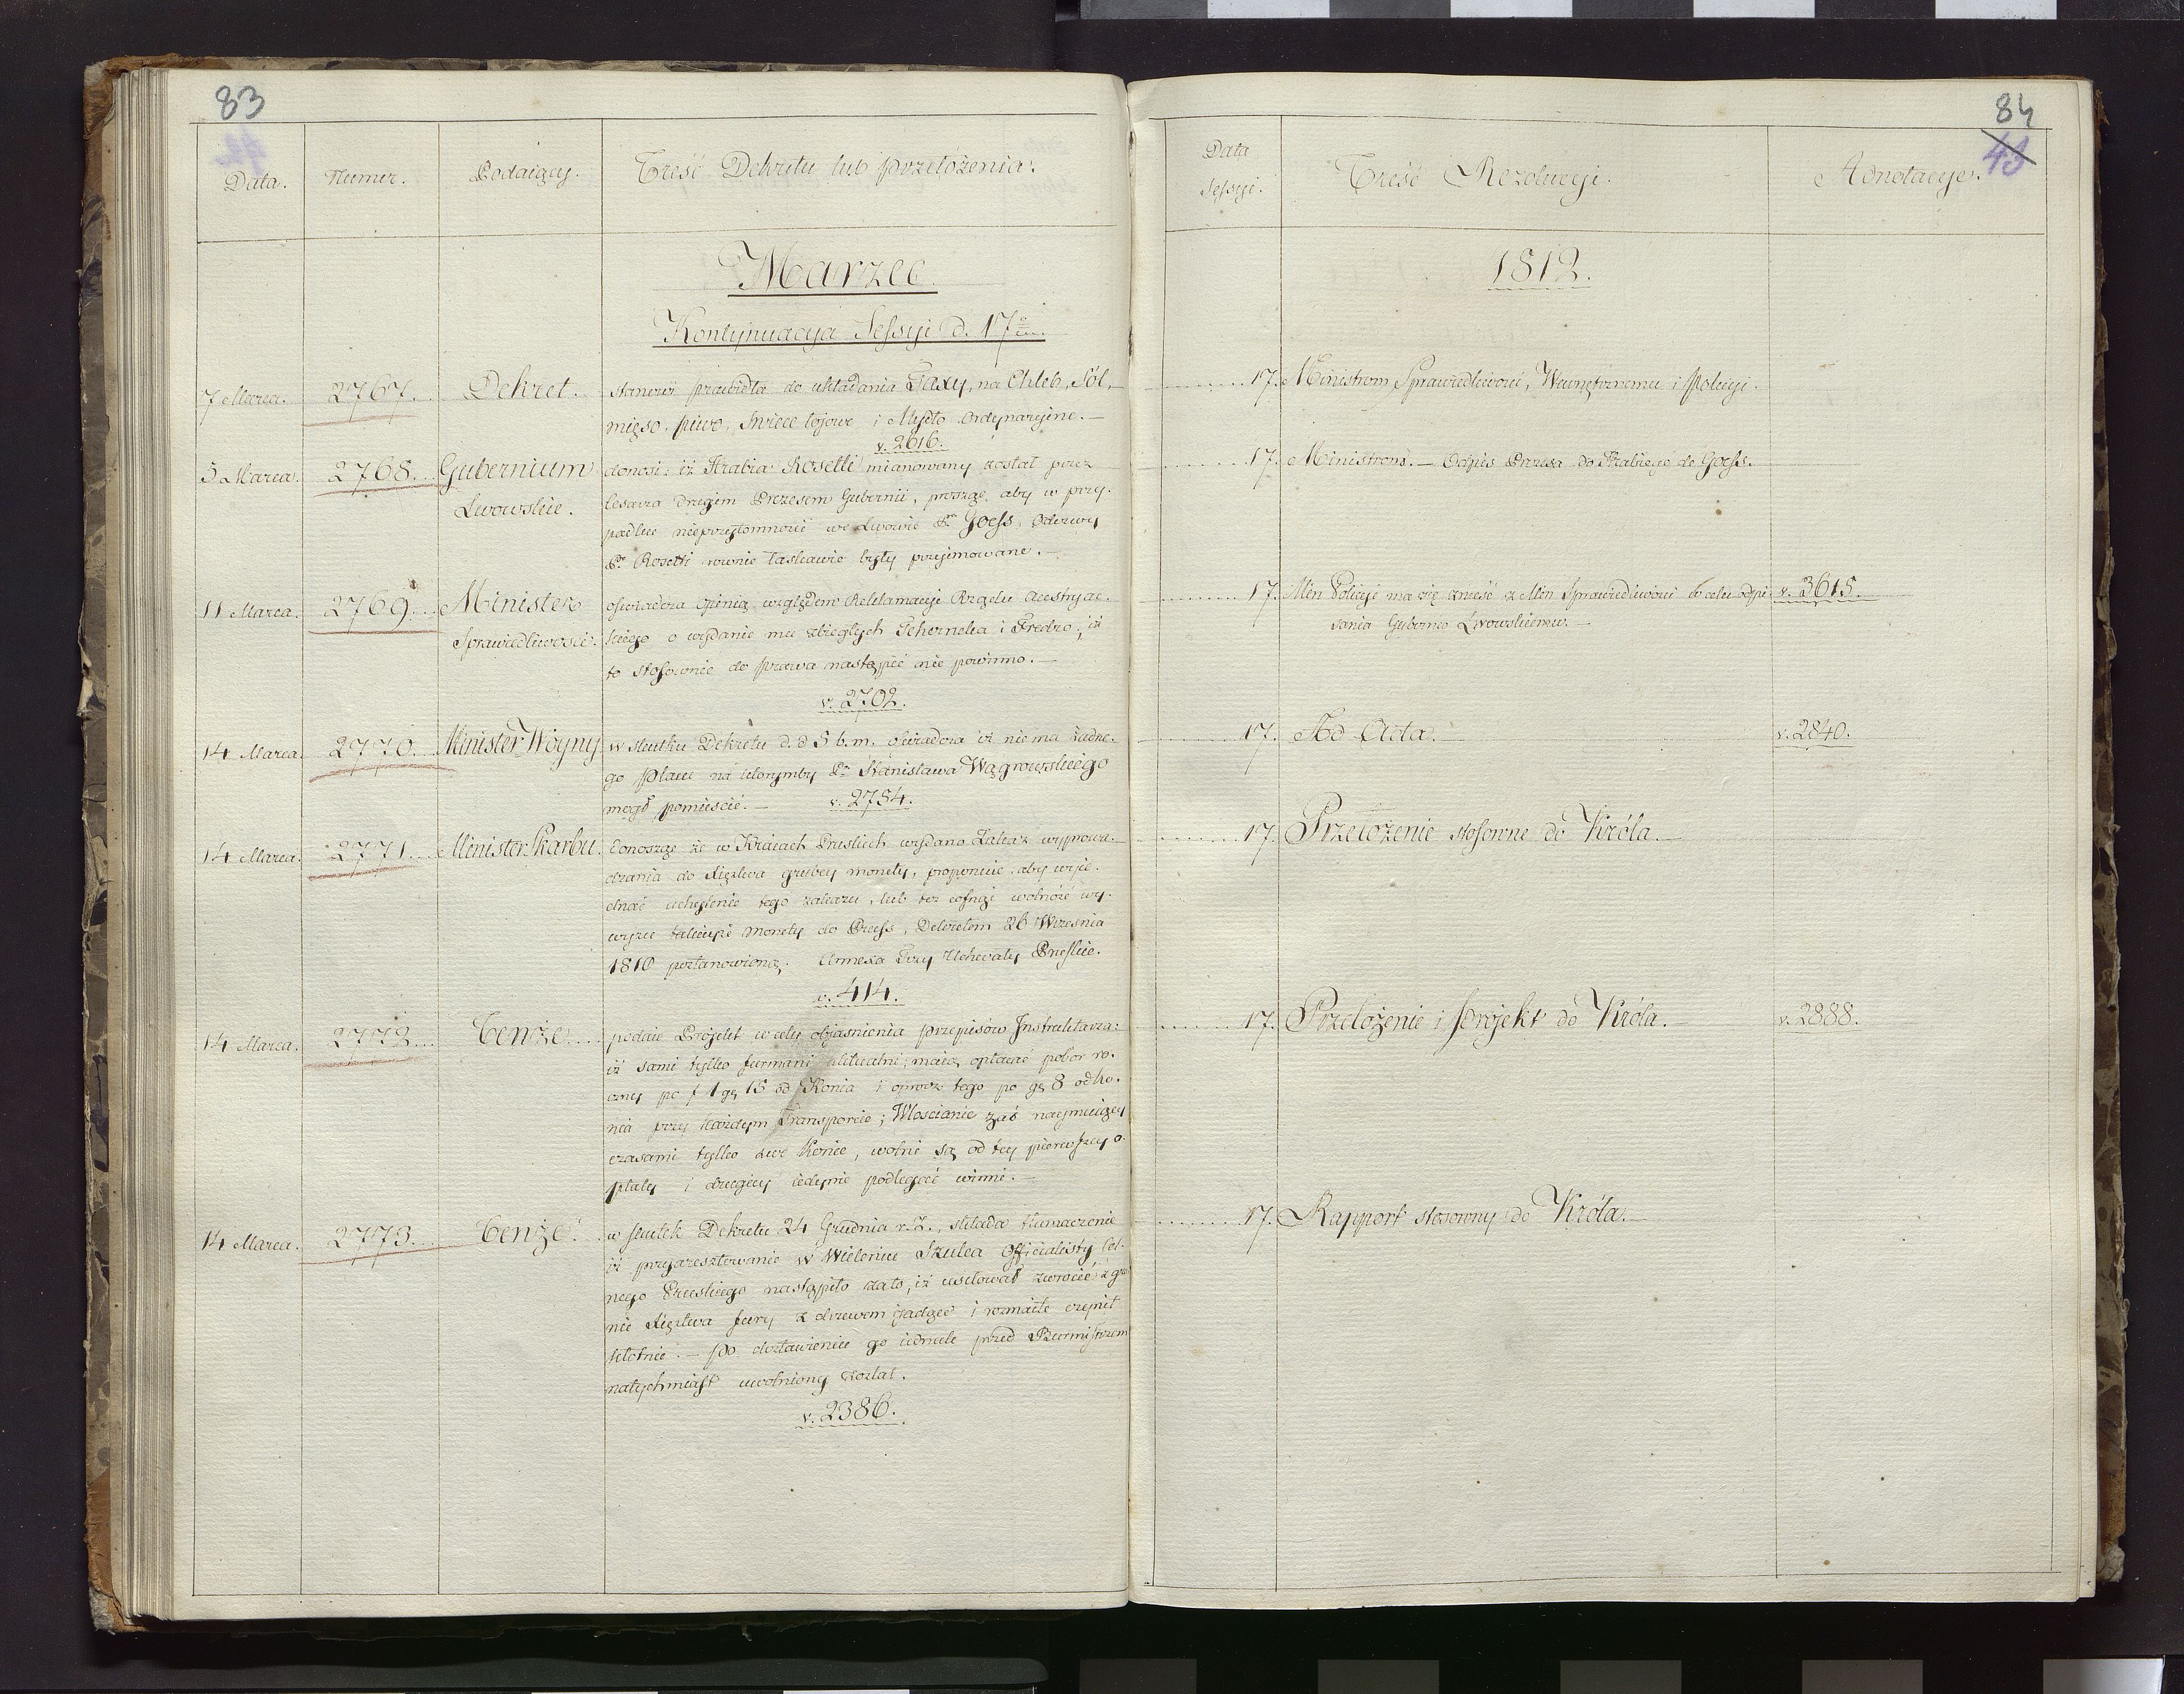 83
Data.
Numer.
Podaiący.
Treść Dekretu lub przełożenia.
Marzec
Kontynuacya Sessyi d. 17
7 Marca. 2767. Dekret. stanowi prawidła do układania Taxy, na Chleb, Sól,
mięso, piwo, świece łojowe i Mydło Ordynaryine.—
v. 2616.
5 Marca. 2768. Gubernium donosi: iż Hrabia Rosetti mianowany został przez
Lwowskie. Cesarza drugim Prezesem Gubernii, prosząc, aby w przy-
padku nieprzytomności we Lwowie Pa Goess, Odezwy
Pa Rosetti rownie łaskawie były przyimowane.—
11 Marca. 2769. Minister oświadcza opinią względem Reklamacyi Rządu Austryac-
Sprawiedliwości. kiego o wydanie mu zbiegłych Schornela i Fredro, iż
to stosownie do prawa nastąpić nie powinno.—
v. 2702.
14 Marca. 2770. Minister Woyny w skutku Dekretu d. d 5 b. m. oświadcza iż nie ma żadne-
go placu na którymby Pa Stanisława Wągrowskiego
mógł pomieścić.— v. 2754.
14 Marca. 2771. Minister Skarbu. donosząc że w Kraiach Pruskich wydano Zakaz wyprowa-
dzania do Xięztwa grubey monety, proponuie, aby wyie-
dnać uchylenie tego zakazu, lub też cofnąć wolność wy-
wozu takieyże monety do Pruss, Dekretem 26 Września
1810 postanowioną. Annexa Trzy Uchwały Pruskie.
v. 414.
14 Marca. 2772. Tenże podaie Projekt w celu objasnienia przepisów Instruktarza:
iż sami tylko furmani aktualni; maią opłacać pobór ro-
czny po f 1 gr 15 od Konia i oprocz tego po gr 8 od ko-
nia przy każdym Transporcie; Włoscianie zaś naymuiący
czasami tylko swe Konie, wolni są od tey pierwszey o-
płaty i drugiey iedynie podlegać winni.—
14 Marca. 2773. Tenże. w skutek Dekretu 24 Grudnia r. z., składa tłumaczenie
iż przyaresztowanie w Wieleniu Szulca Officialisty Cel-
nego Pruskiego nastąpiło zato, iż usiłował zwrócić z gra
nic Xięztwa fury z drzewem iadące i rozmaite czynił
kłótnie.— po dostawieniu go iednak przed Burmistrzem
natychmiast uwolniony został.
v. 2386.
84
43
Data
Sessyi.
Treść Rezolucyi.
Adnotacye.
1812.
17. Ministrom Sprawiedliwości, Wewnętrznemu i Policyi.
17. Ministrom.— Odpis Prezesa do Hrabiego de Goess.
17. Min Policyi ma się znieść z Min Sprawiedliwości w celu odpi- v. 3615.
sania Gubernio Lwowskiemu.—
17. Ad Acta. v. 2840.
17. Przełożenie stosowne do Króla.—
17. Przełożenie i projekt do Króla. v. 2888.
17. Rapport stosowny do Króla.—